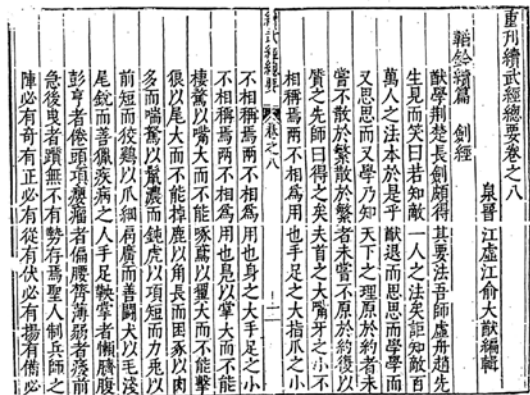 重刊續武經總要卷之八
泉晉江虛江俞大猷編輯
韜鈐續篇 劍經
猷學荆楚長劍頗得其要法吾師虛舟趙先
生見而笑曰若知敵一人之法矣詎知敵百
萬人之法本於是乎猷退而思思而學學而
又思思而又學乃知天下之理原於約者未
嘗不散於繁散於繁者未嘗不原於約復以
質之先師曰得之矣夫首之大嘴牙之小不
相稱焉兩不相爲用也手足之大指爪之小
續武經總要 卷之八 一
不相稱焉兩不相爲用也身之大手足之小
不相稱焉兩不相爲用也鳧以掌大而不能
棲鶩以嘴大而不能啄鳶以翼大而不能擊
狠以尾大而不能掉鹿以角長而困豕以肉
多而喘駑以鬣濃而鈍虎以項短而力兎以
前短而狡鷄以爪細肩廣而善鬪犬以毛淺
尾銳而善獵疾病之人手足軟掌者懶臕腹
彭亨者倦頭項癭瘤者偏腰膂薄弱者痿前
急後曳者躓無不有勢存焉聖人制兵師之
陣必有奇有正必有從有伏必有揚有備必